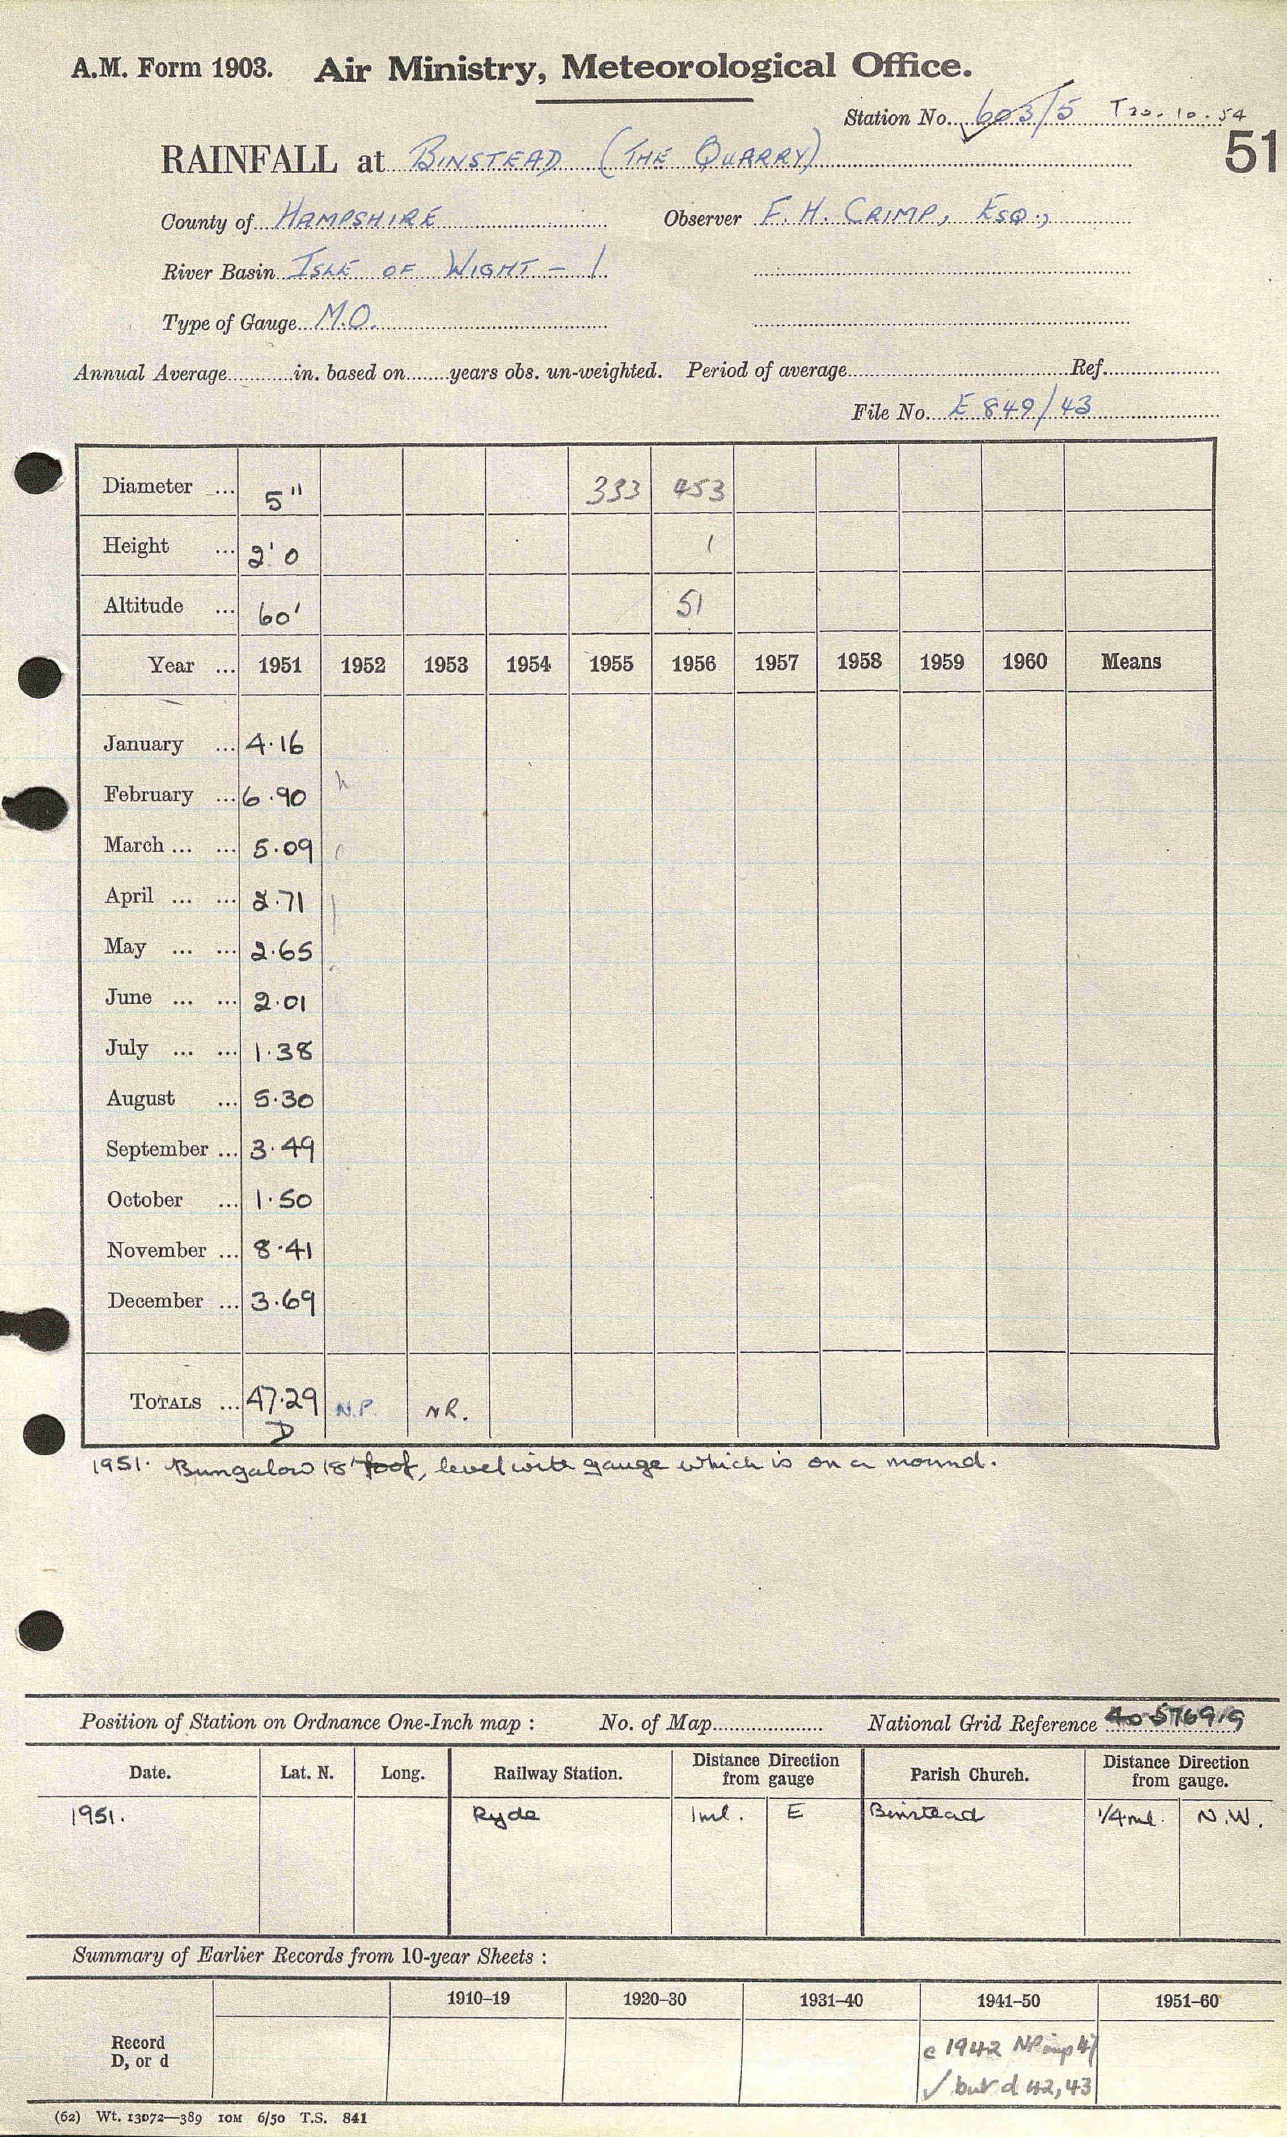 A.M. Form 1903. Air Ministry, Meteorological Office.
Station No. 603/5 T 20.10.54
51
RAINFALL at BINSTEAD (THE QUARRY)
County of HAMPSHIRE Observer F. H. CRIMP, ESQ.,
River Basin ISLE OF WIGHT - 1
Type of Gauge M.O.
Annual Average in. based on years obs. un-weighted. Period of average Ref.
File No. E 849/43
Diameter ... 5" 333 453
Height ... 2' 0 1
Altitude ... 60' 51
Year ... 1951 1952 1953 1954 1955 1956 1957 1958 1959 1960 Means
January ... 4.16
February ... 6.90
March ... ... 5.09
April ... ... 2.71
May ... ... 2.65
June ... ... 2.01
July ... ... 1.38
August ... 5.30
September ... 3.49
October ... 1.50
November ... 8.41
December ... 3.69
TOTALS ... 47.29 N.P. NR.
D
1951. Bungalow 18' foot, level with gauge which is on a mound.
Position of Station on Ordnance One-Inch map : No. of Map National Grid Reference 40 576919
Date. Lat. N. Long. Railway Station. Distance Direction from gauge Parish Church. Distance Direction from gauge.
1951. Ryde 1ml. E Binstead 1/4ml. N.W.
Summary of Earlier Records from 10-year Sheets :
1910–19 1920–30 1931–40 1941–50 1951–60
Record D, or d
c 1942 NP imp 47
✓ but d 42, 43
(62) Wt. 13072—389 10M 6/50 T.S. 841